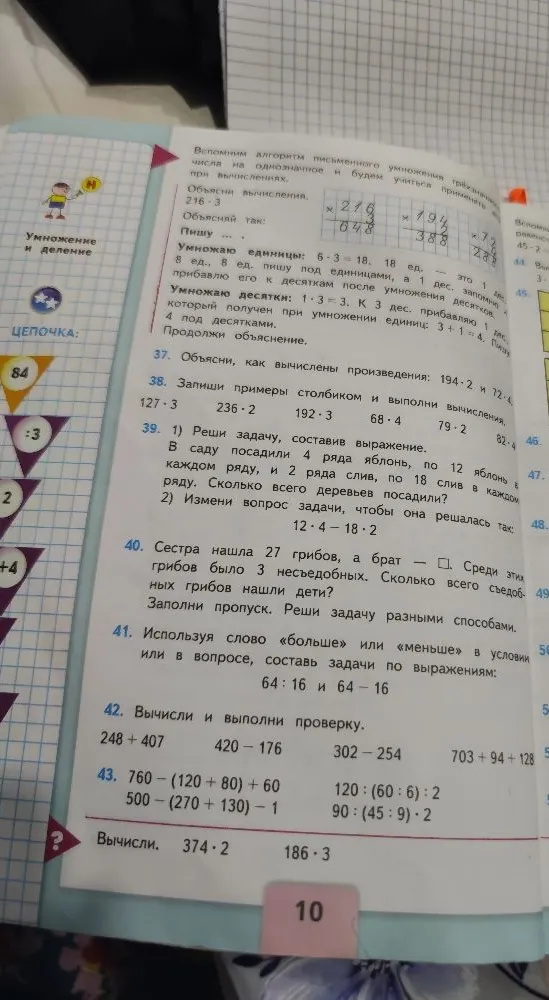 Н
Умножение
и деление
ЦЕПОЧКА:
84
:3
2
+4
Вспомним алгоритм письменного умножения трёхзначного
числа на однозначное и будем учиться применять его
при вычислениях.
Объясни вычисления.
216 · 3
Объясняй так:
Пишу ... .
× 216
3
648
× 194
2
388
× 72
288
Умножаю единицы: 6 · 3 = 18. 18 ед. — это 1 дес.
8 ед., 8 ед. пишу под единицами, а 1 дес. запомню и
прибавлю его к десяткам после умножения десятков.
Умножаю десятки: 1 · 3 = 3. К 3 дес. прибавляю 1 дес.,
который получен при умножении единиц: 3 + 1 = 4. Пишу
4 под десятками.
Продолжи объяснение.
37. Объясни, как вычислены произведения: 194 · 2 и 72 · 4.
38. Запиши примеры столбиком и выполни вычисления.
127 · 3 236 · 2 192 · 3 68 · 4 79 · 2 82 · 4
39. 1) Реши задачу, составив выражение.
В саду посадили 4 ряда яблонь, по 12 яблонь в
каждом ряду, и 2 ряда слив, по 18 слив в каждом
ряду. Сколько всего деревьев посадили?
2) Измени вопрос задачи, чтобы она решалась так:
12 · 4 − 18 · 2
40. Сестра нашла 27 грибов, а брат — □. Среди этих
грибов было 3 несъедобных. Сколько всего съедоб-
ных грибов нашли дети?
Заполни пропуск. Реши задачу разными способами.
41. Используя слово «больше» или «меньше» в условии
или в вопросе, составь задачи по выражениям:
64 : 16 и 64 − 16
42. Вычисли и выполни проверку.
248 + 407 420 − 176 302 − 254 703 + 94 + 128
43. 760 − (120 + 80) + 60 120 : (60 : 6) : 2
500 − (270 + 130) − 1 90 : (45 : 9) · 2
? Вычисли. 374 · 2 186 · 3
10
45 · 7
44.
45.
46.
47.
48.
49